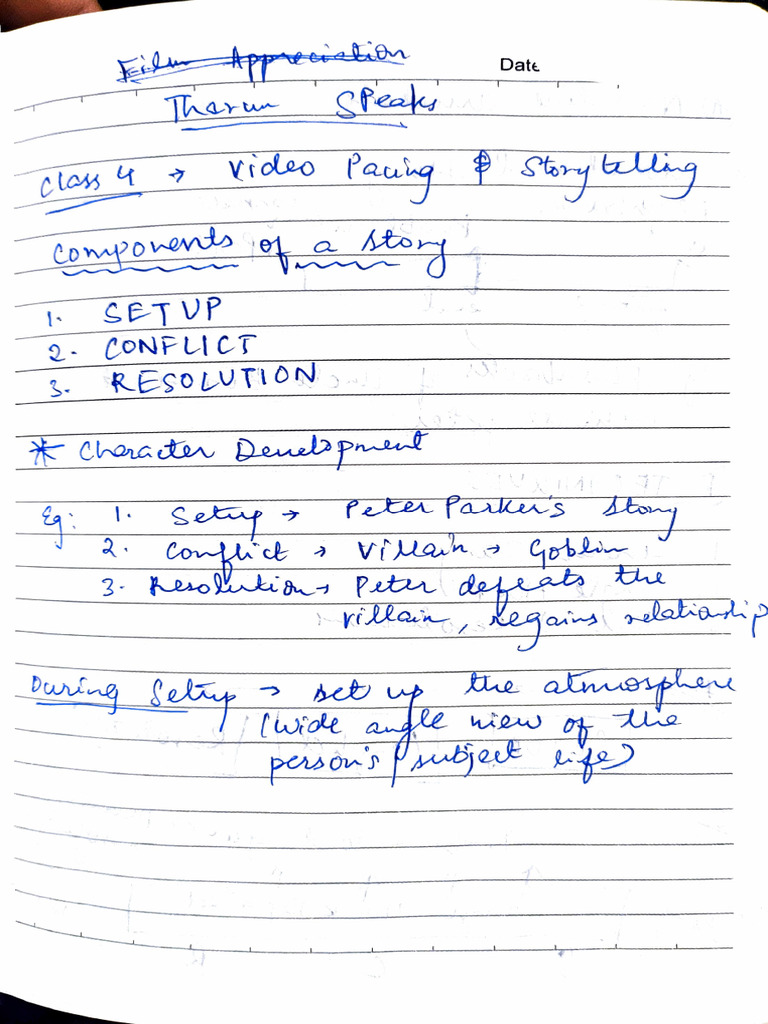 Film Appreciation
Date
Tharun Speaks
Class 4 → Video Pacing & Storytelling
Components of a Story
1. SETUP
2. CONFLICT
3. RESOLUTION
* Character Development
Eg: 1. Setup → Peter Parker's Story
2. Conflict → Villain → Goblin
3. Resolution → Peter defeats the
villain, regains relationship
During Setup → set up the atmosphere
(wide angle view of the
person's/subject life)